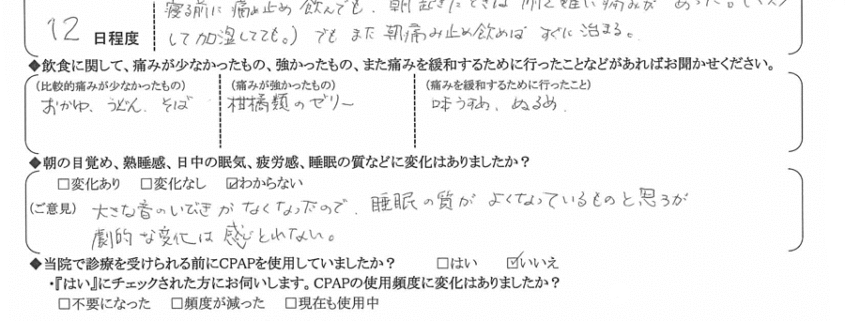 寝る前に痛み止め飲んでも、朝起きたときは
12 日程度
して加湿してても。) でもまた朝痛み止め飲めば すぐに治まる。
◆飲食に関して、痛みが少なかったもの、強かったもの、また痛みを緩和するために行ったことなどがあればお聞かせください。
(比較的痛みが少なかったもの) (痛みが強かったもの) (痛みを緩和するために行ったこと)
おかゆ、うどん、そば 柑橘類のゼリー 味うすめ、ぬるめ、
◆朝の目覚め、熟睡感、日中の眠気、疲労感、睡眠の質などに変化はありましたか?
□変化あり □変化なし ☑わからない
(ご意見) 大きな音のいびきがなくなったので、睡眠の質がよくなっているものと思うが
劇的な変化は感じとれない。
◆当院で診療を受けられる前にCPAPを使用していましたか? □はい ☑いいえ
・『はい』にチェックされた方にお伺いします。CPAPの使用頻度に変化はありましたか?
□不要になった □頻度が減った □現在も使用中